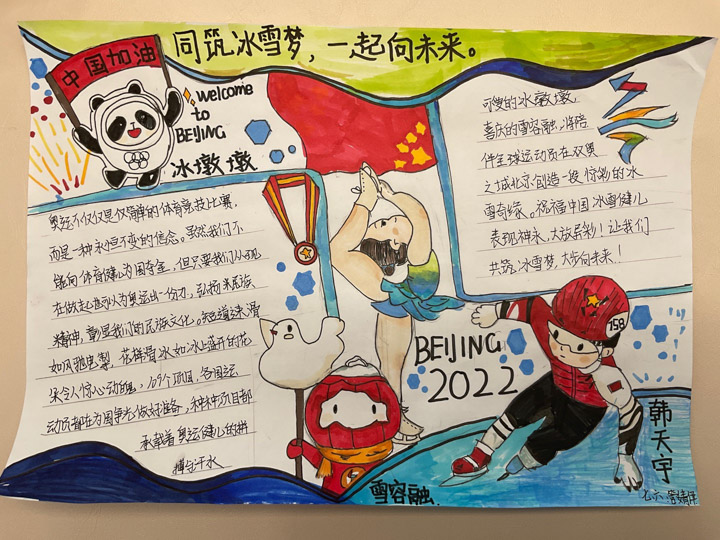 同筑冰雪梦,一起向未来。
中国加油
welcome
to
BEIJING
冰墩墩
可爱的冰墩墩,
喜庆的雪容融,将陪
伴全球运动员在双奥
之城北京创造一段惊彩的冰
雪奇缘。祝福中国冰雪健儿
表现神永,大放异彩!让我们
共筑冰雪梦,大步向未来!
奥运不仅仅是仅简单的体育竞技比赛,
而是一种永恒不变的信念。虽然我们不
能向体育健儿为国夺金,但只要我们从现
在做起也可以为奥运出一份力,弘扬
民族
精神,彰显我们的民族文化。知道速滑
如风驰电掣,花样滑冰如冰上盛开的花
朵令人惊心动魄,109个项目,各国运
动员都在为国争光做好准备,种种项目都
承载着奥运健儿的拼
搏与汗水
BEIJING
2022
158
韩天宇
雪容融
七六